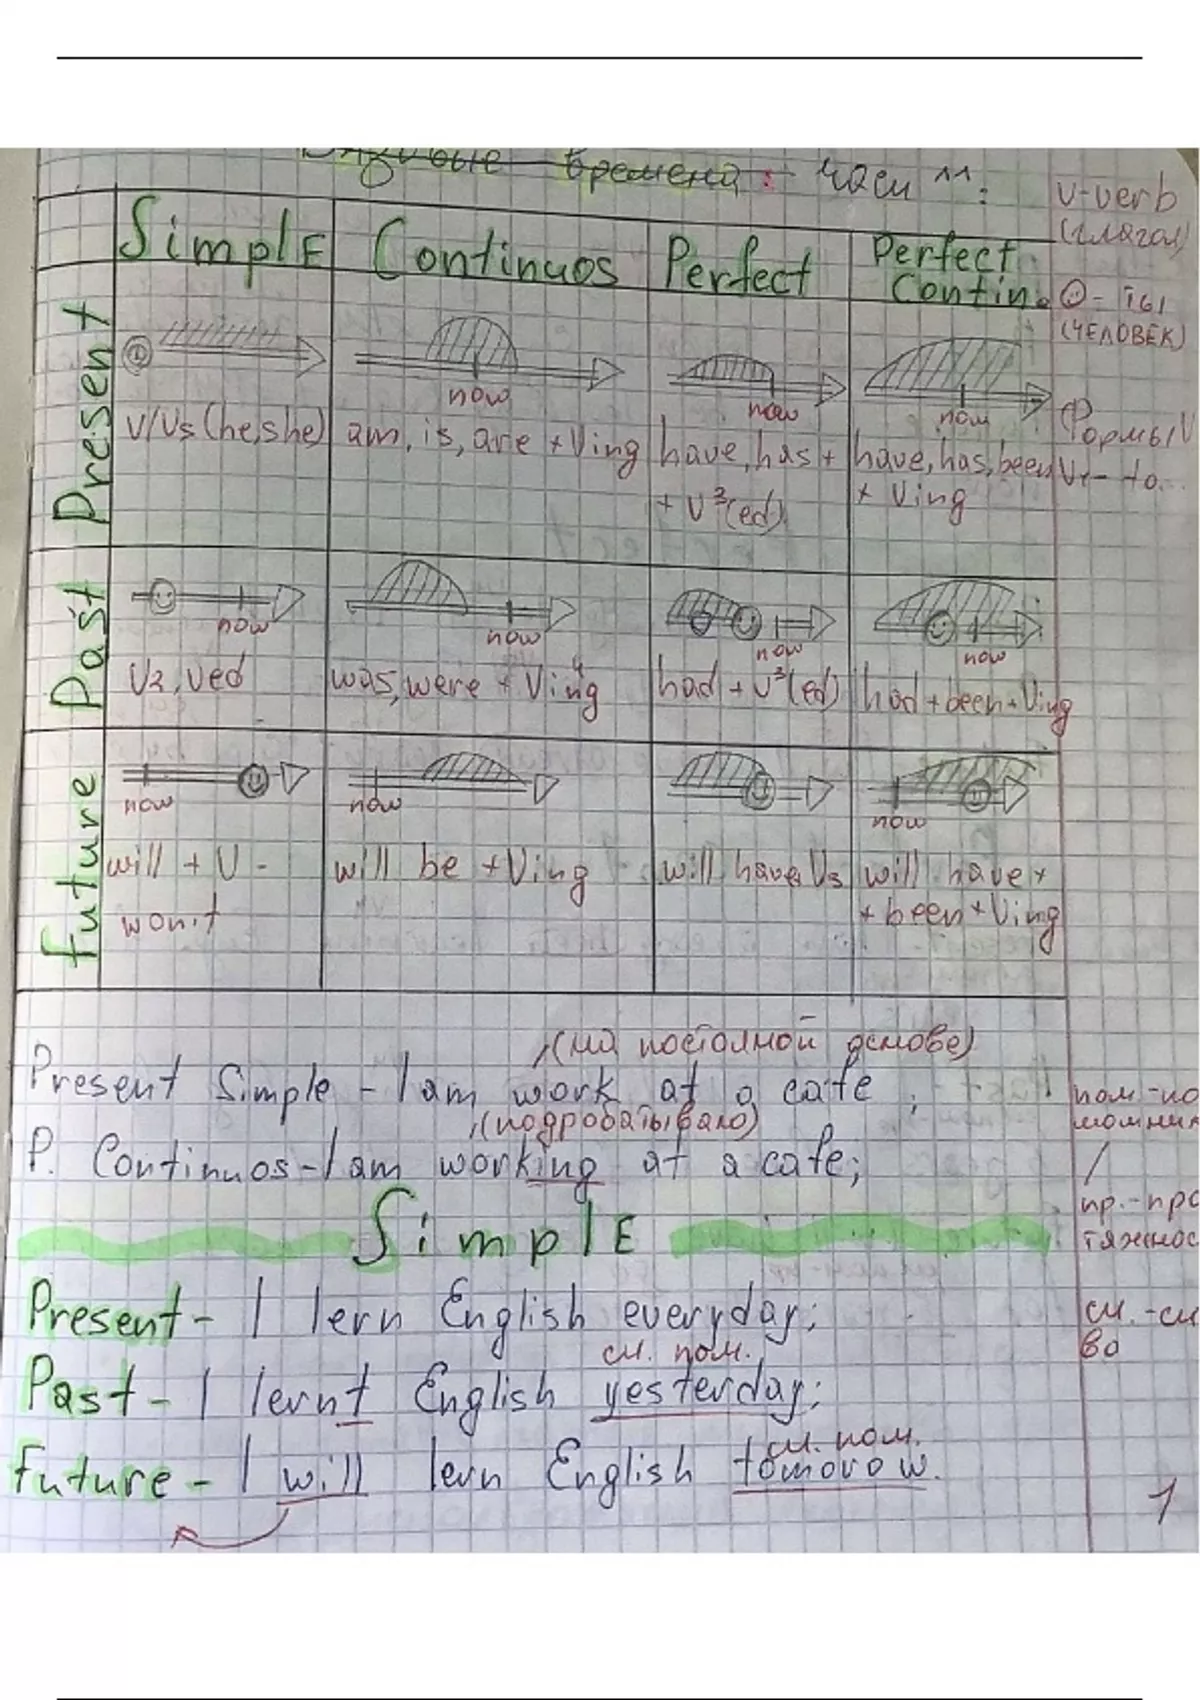 времена : часи "":
v-verb
(глагол)
SimplE Continuos Perfect Perfect
Contin.
☺- ты
(ЧЕЛОВЕК)
Present
now now now
V/Vs (he,she) am, is, are + Ving have, has + have, has, been
+ V³(ed) + Ving
Формы V
Past
now now now now
V2, Ved was, were + Ving had + V³(ed) had + been + Ving
Future
now now now
will + V - will be + Ving will have V3 will have +
won't + been + Ving
(на постояной основе)
Present Simple - I am work at a cafe ;
(подробатываю)
P. Continuos - I am working at a cafe;
пом-по
мочник
/
пр.-про
тяжнос
SimplE
Present - I lern English everyday;
см. пом.
Past - I lernt English yesterday;
см. пом.
Future - I will lern English tomorow.
1